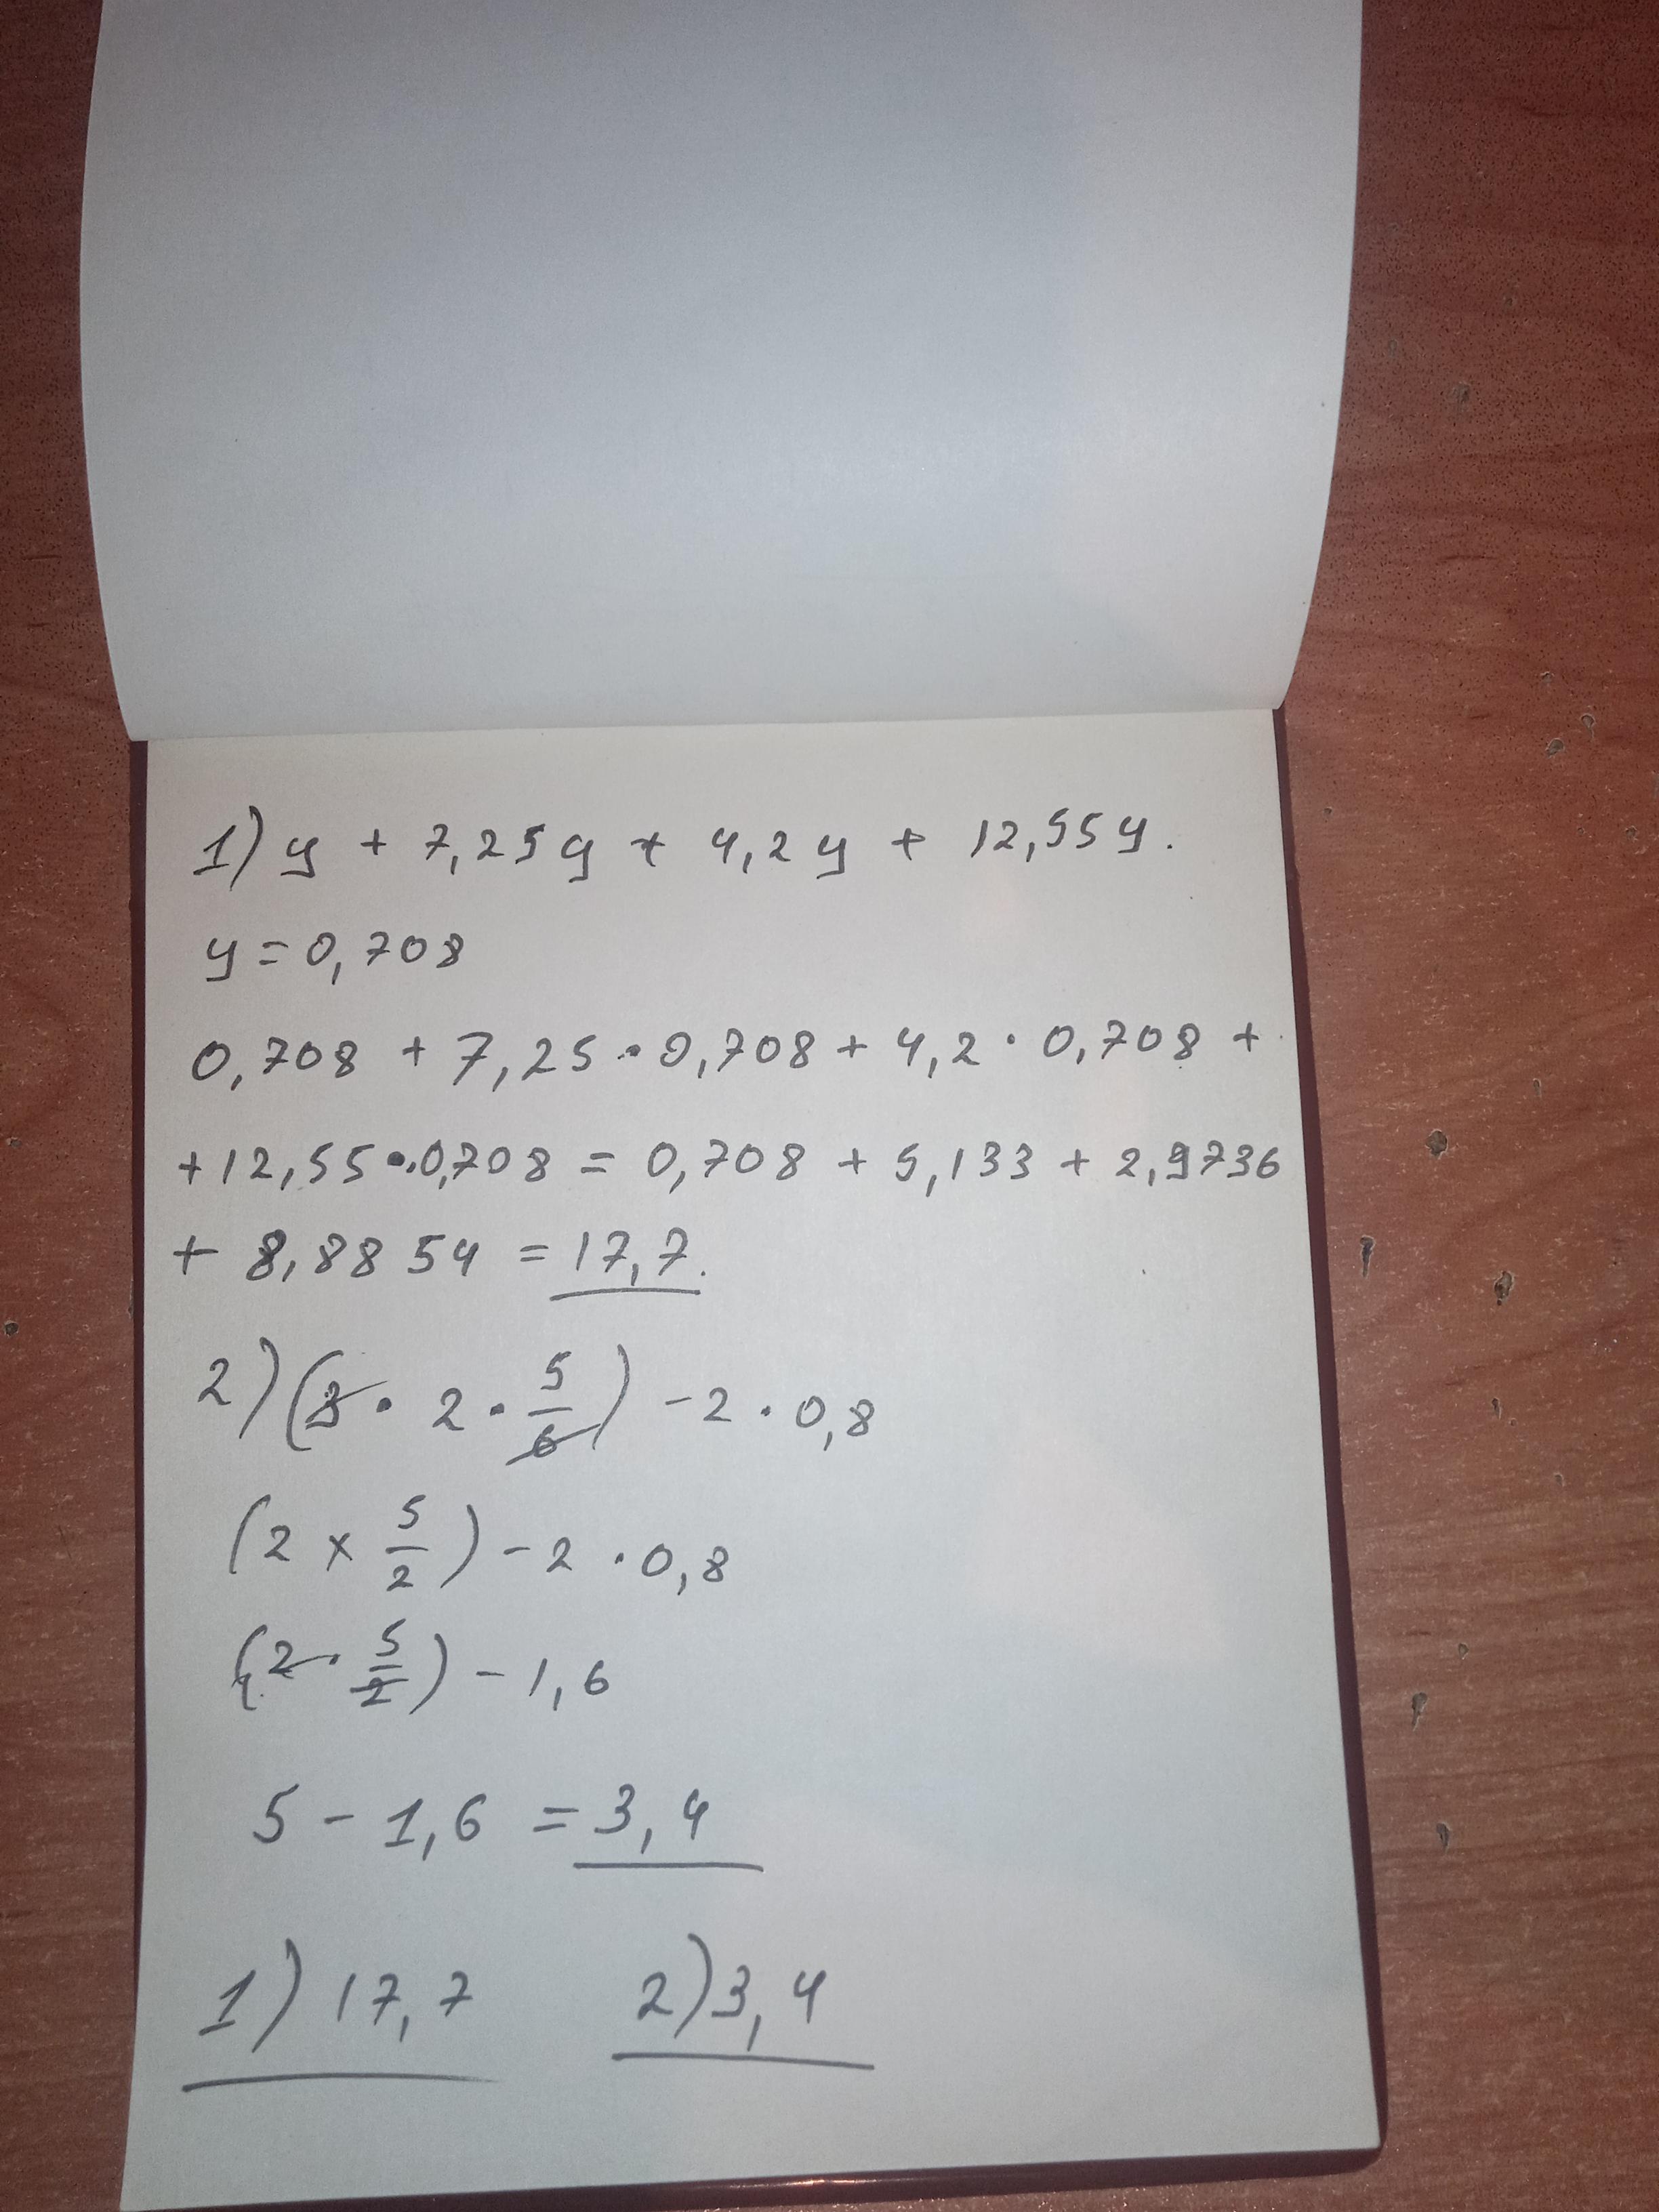 1) y + 7,25y + 4,2y + 12,55y.
y = 0,708
0,708 + 7,25 · 0,708 + 4,2 · 0,708 +
+ 12,55 · 0,708 = 0,708 + 5,133 + 2,9736
+ 8,8854 = 17,7.
2) (3 · 2 · 5/6) - 2 · 0,8
(2 x 5/2) - 2 · 0,8
(2 · 5/2) - 1,6
5 - 1,6 = 3,4
1) 17,7 2) 3,4